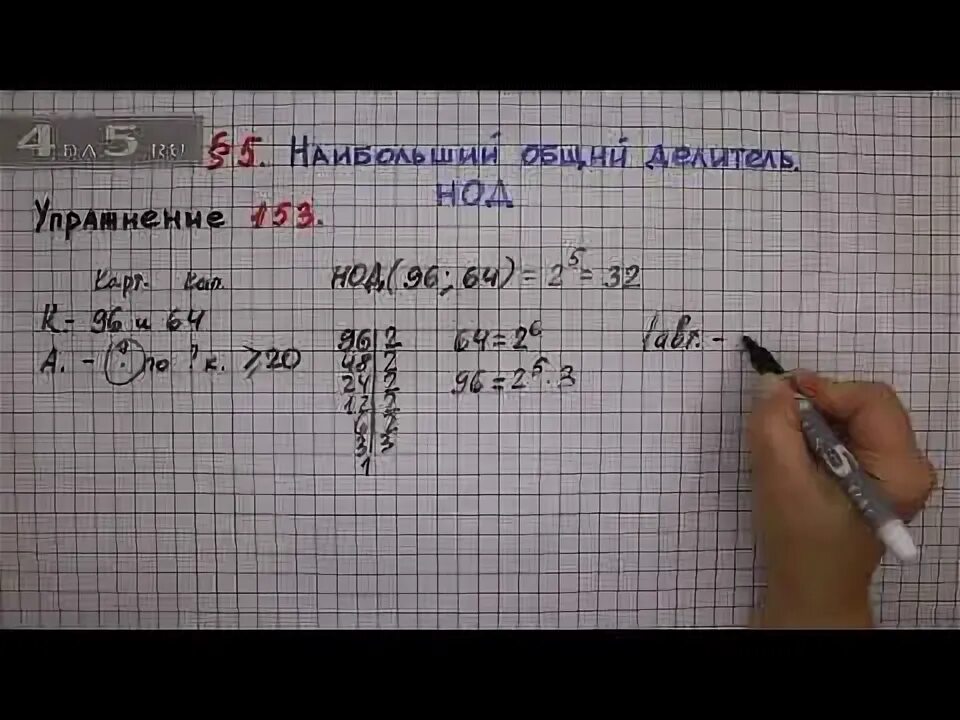 4 НА 5 .RU
§5. Наибольший общий делитель.
НОД
Упражнение 153.
Карт. Кап.
К - 96 и 64
А. - ? по ? к. ⩾20
НОД(96; 64) = 2⁵ = 32
96 | 2
48 | 2
24 | 2
12 | 2
6 | 2
3 | 3
1
64 = 2⁶
96 = 2⁵ · 3
1 авт. -